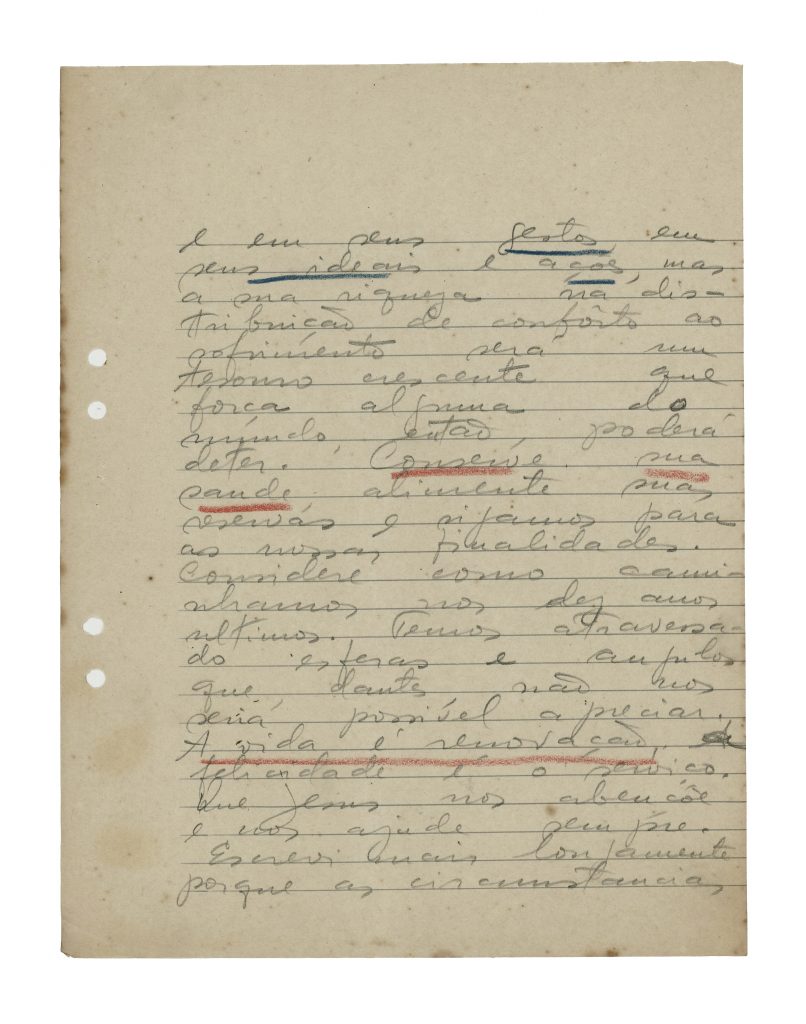 e em seus gestos, em
seus ideais e ações, mas
a sua riqueza na dis-
tribuição de confôrto ao
sofrimento será um
tesouro crescente que
força alguma do
mundo, então, poderá
deter. Conserve sua
saude, alimente suas
reservas e sigamos para
as nossas finalidades.
Considere como cami-
nhamos nos dez anos
ultimos. Temos atravessa-
do esferas e angulos
que, dantes, não nos
seria possivel apreciar.
A vida é renovação. A
felicidade é o serviço.
Que Jesus nos abençôe
e nos ajude sempre.
Escrevi mais longamente
porque as circumstancias